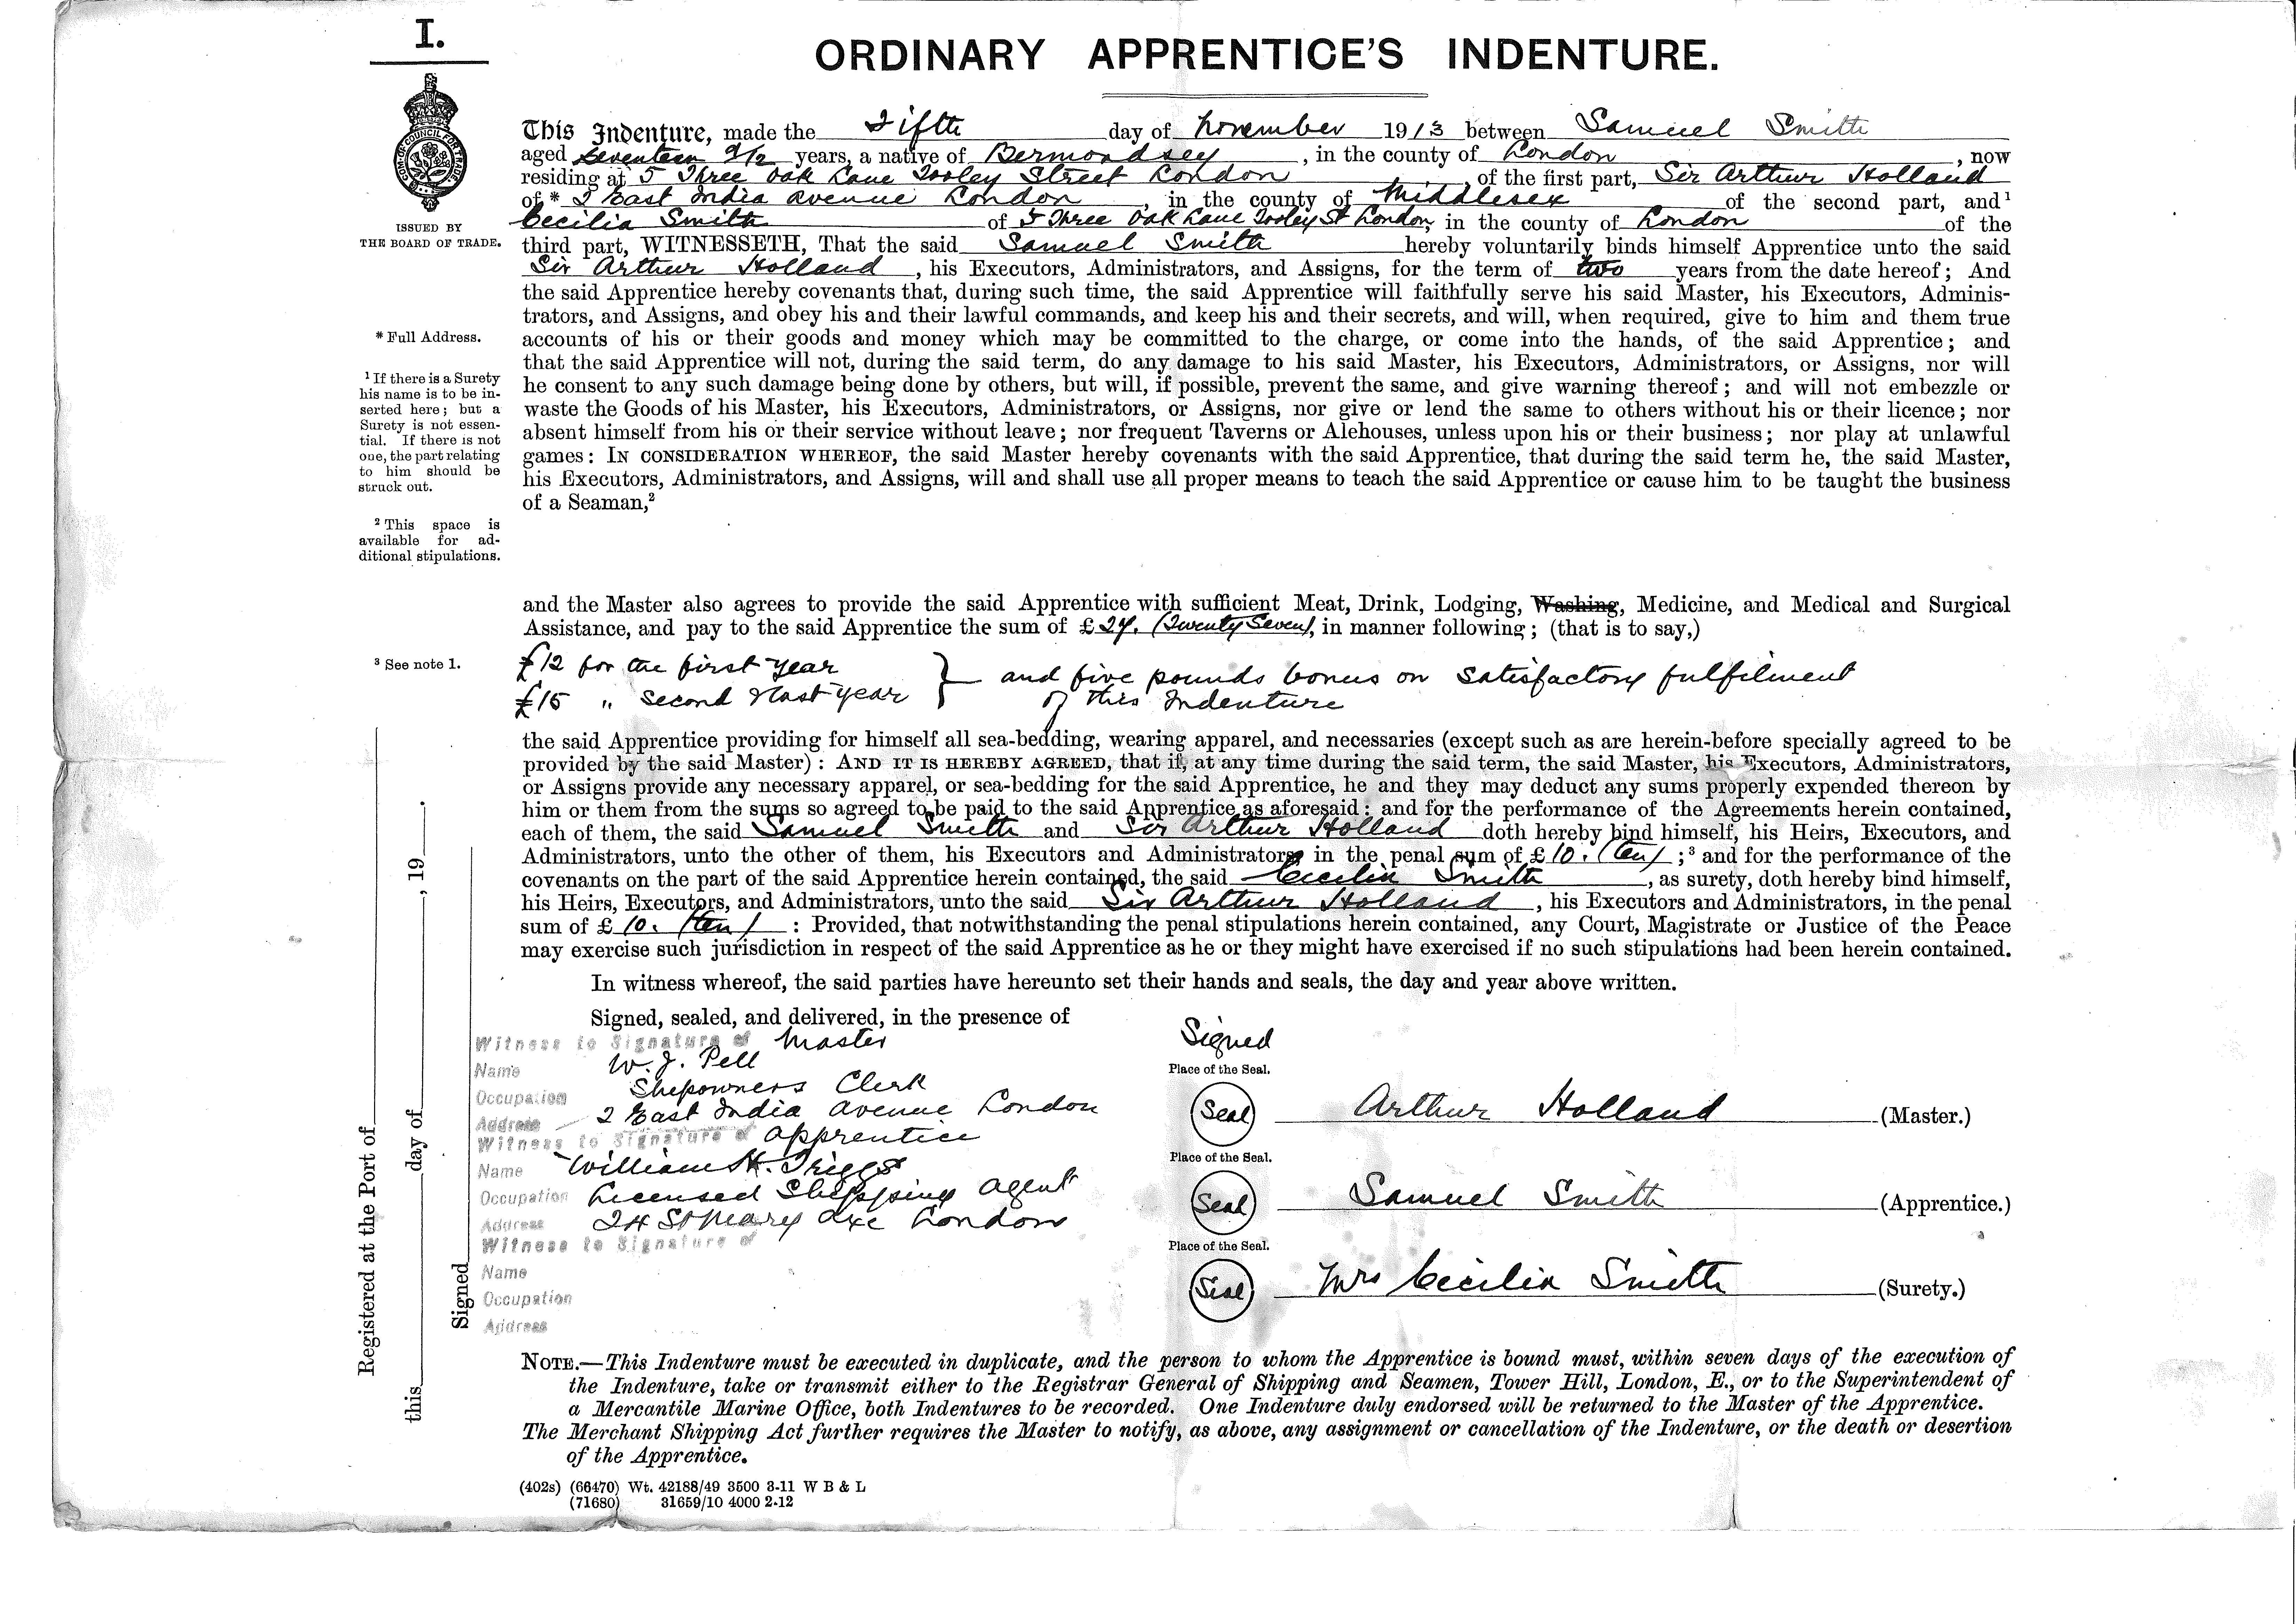 I.
ORDINARY APPRENTICE'S INDENTURE.
COM. OF COUNCIL FOR TRADE
ISSUED BY
THE BOARD OF TRADE.
This Indenture, made the Fifth day of November 1913 between Samuel Smith
aged seventeen 9/12 years, a native of Bermondsey, in the county of London, now
residing at 5 Three Oak Lane Tooley Street London, of the first part, Sir Arthur Holland
of * 2 East India Avenue London, in the county of Middlesex of the second part, and¹
Cecilia Smith of 5 Three Oak Lane Tooley St London, in the county of London of the
third part, WITNESSETH, That the said Samuel Smith hereby voluntarily binds himself Apprentice unto the said
Sir Arthur Holland, his Executors, Administrators, and Assigns, for the term of two years from the date hereof; And
the said Apprentice hereby covenants that, during such time, the said Apprentice will faithfully serve his said Master, his Executors, Adminis-
trators, and Assigns, and obey his and their lawful commands, and keep his and their secrets, and will, when required, give to him and them true
accounts of his or their goods and money which may be committed to the charge, or come into the hands, of the said Apprentice; and
that the said Apprentice will not, during the said term, do any damage to his said Master, his Executors, Administrators, or Assigns, nor will
he consent to any such damage being done by others, but will, if possible, prevent the same, and give warning thereof; and will not embezzle or
waste the Goods of his Master, his Executors, Administrators, or Assigns, nor give or lend the same to others without his or their licence; nor
absent himself from his or their service without leave; nor frequent Taverns or Alehouses, unless upon his or their business; nor play at unlawful
games: IN CONSIDERATION WHEREOF, the said Master hereby covenants with the said Apprentice, that during the said term he, the said Master,
his Executors, Administrators, and Assigns, will and shall use all proper means to teach the said Apprentice or cause him to be taught the business
of a Seaman,²
* Full Address.
¹ If there is a Surety
his name is to be in-
serted here; but a
Surety is not essen-
tial. If there is not
one, the part relating
to him should be
struck out.
² This space is
available for ad-
ditional stipulations.
and the Master also agrees to provide the said Apprentice with sufficient Meat, Drink, Lodging, Washing, Medicine, and Medical and Surgical
Assistance, and pay to the said Apprentice the sum of £27. (Twenty Seven), in manner following; (that is to say,)
³ See note 1.
£12 for the first year
£15 " second & last year } and five pounds bonus on satisfactory fulfilment
of this Indenture
the said Apprentice providing for himself all sea-bedding, wearing apparel, and necessaries (except such as are herein-before specially agreed to be
provided by the said Master): AND IT IS HEREBY AGREED, that if, at any time during the said term, the said Master, his Executors, Administrators,
or Assigns provide any necessary apparel, or sea-bedding for the said Apprentice, he and they may deduct any sums properly expended thereon by
him or them from the sums so agreed to be paid to the said Apprentice as aforesaid: and for the performance of the Agreements herein contained,
each of them, the said Samuel Smith and Sir Arthur Holland doth hereby bind himself, his Heirs, Executors, and
Administrators, unto the other of them, his Executors and Administrators in the penal sum of £10. (ten);³ and for the performance of the
covenants on the part of the said Apprentice herein contained, the said Cecilia Smith, as surety, doth hereby bind himself,
his Heirs, Executors, and Administrators, unto the said Sir Arthur Holland, his Executors and Administrators, in the penal
sum of £10. (ten): Provided, that notwithstanding the penal stipulations herein contained, any Court, Magistrate or Justice of the Peace
may exercise such jurisdiction in respect of the said Apprentice as he or they might have exercised if no such stipulations had been herein contained.
In witness whereof, the said parties have hereunto set their hands and seals, the day and year above written.
Signed, sealed, and delivered, in the presence of
Witness to Signature of Master
Name W. J. Pell
Occupation Shipowners Clerk
Address 2 East India Avenue London
Witness to Signature of apprentice
Name William H. Triggs
Occupation Licensed Shipping Agent
Address 24 St Mary Axe London
Witness to Signature of
Name
Occupation
Address
Signed
Place of the Seal.
Seal Arthur Holland (Master.)
Place of the Seal.
Seal Samuel Smith (Apprentice.)
Place of the Seal.
Seal Mrs Cecilia Smith (Surety.)
Registered at the Port of
this day of , 19 .
Signed
NOTE.—This Indenture must be executed in duplicate, and the person to whom the Apprentice is bound must, within seven days of the execution of
the Indenture, take or transmit either to the Registrar General of Shipping and Seamen, Tower Hill, London, E., or to the Superintendent of
a Mercantile Marine Office, both Indentures to be recorded. One Indenture duly endorsed will be returned to the Master of the Apprentice.
The Merchant Shipping Act further requires the Master to notify, as above, any assignment or cancellation of the Indenture, or the death or desertion
of the Apprentice.
(402s) (66470) Wt. 42188/49 3500 3-11 W B & L
(71680) 31659/10 4000 2-12